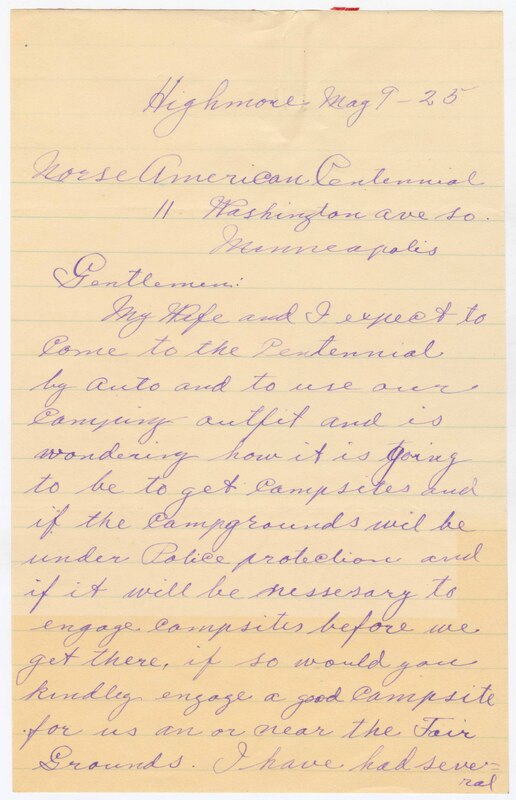 Highmore May 9-25
Norse American Centennial
11 Washington ave so.
Minneapolis
Gentlemen:
My Wife and I expect to
Come to the Centennial
by Auto and to use our
Camping outfit and is
wondering how it is going
to be to get Campsites and
if the Campgrounds wil be
under Police protection and
if it will be nessesary to
engage Campsites before we
get there, if so would you
kindley engage a good Campsite
for us an or near the Fair
Grounds. I have had sever=
ral